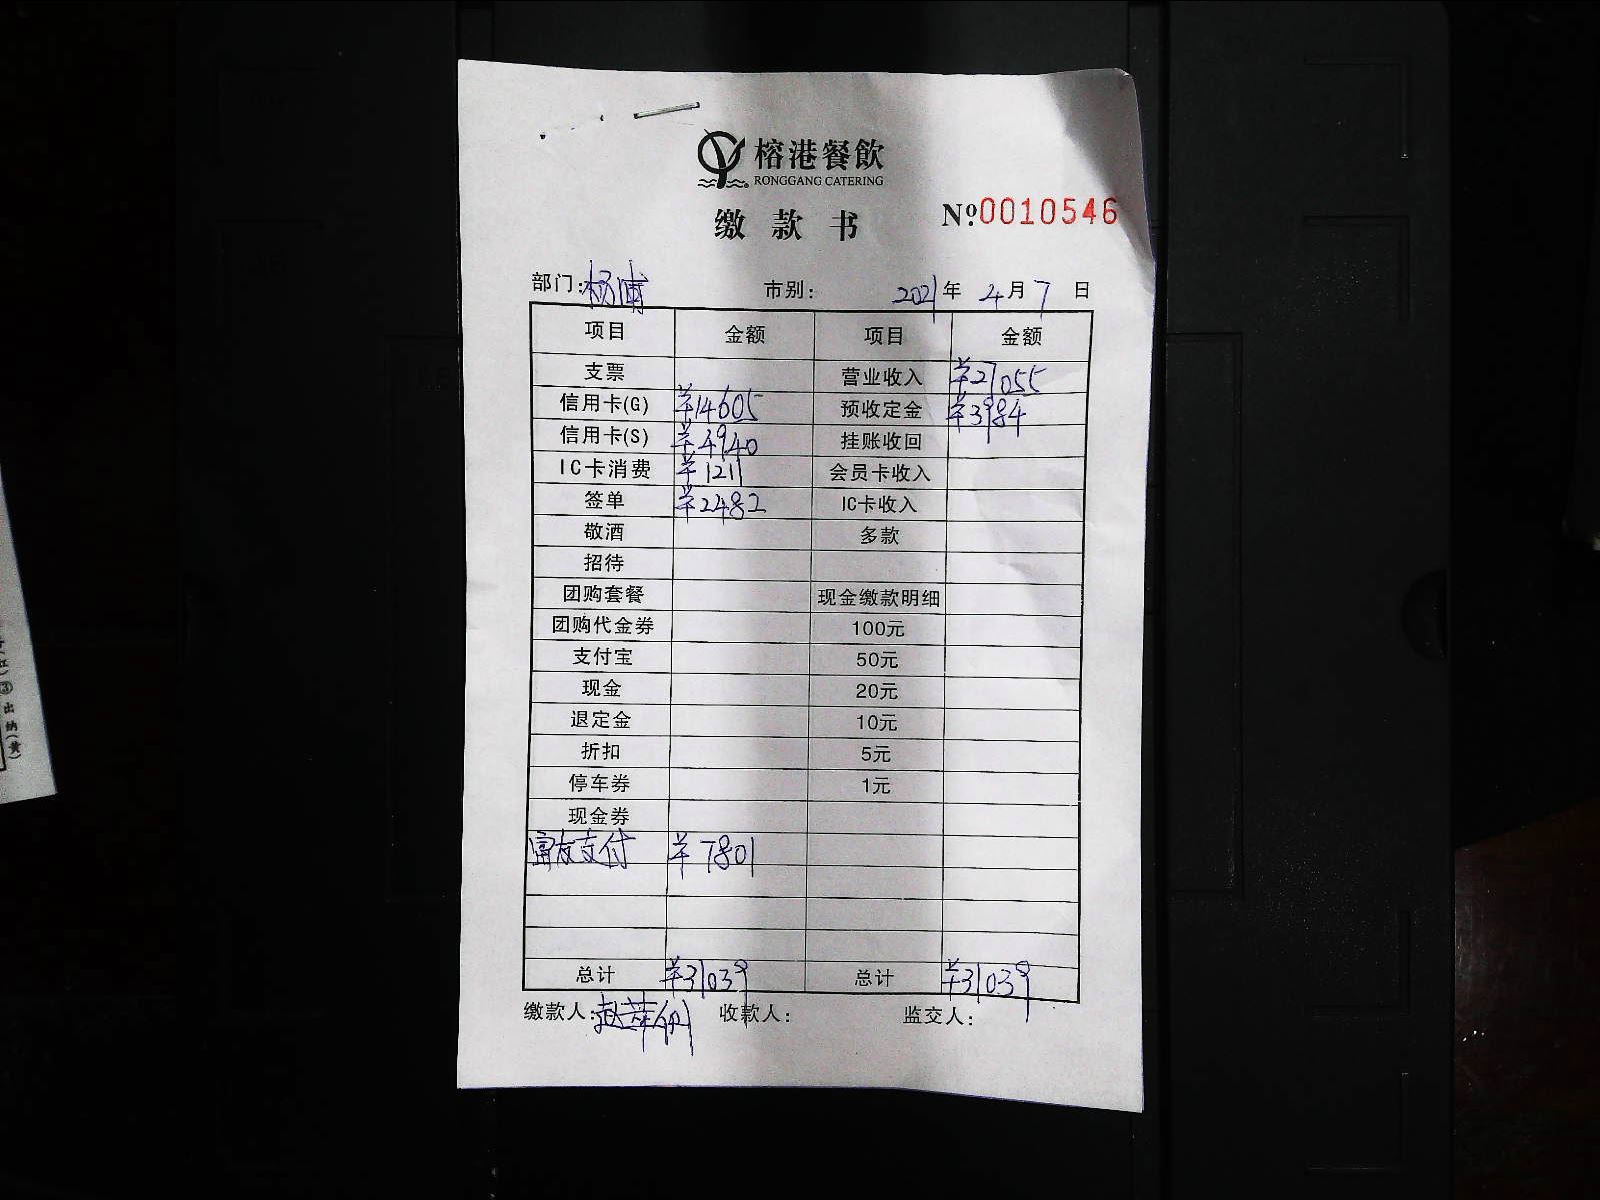 榕港餐飲
RONGGANG CATERING
缴款书 №0010546
部门:杨浦 市别: 2021年 4月7日
项目 金额 项目 金额
支票 营业收入 ¥27055
信用卡(G) ¥14605 预收定金 ¥3984
信用卡(S) ¥4940 挂账收回
IC卡消费 ¥1211 会员卡收入
签单 ¥2482 IC卡收入
敬酒 多款
招待
团购套餐 现金缴款明细
团购代金券 100元
支付宝 50元
现金 20元
退定金 10元
折扣 5元
停车券 1元
现金券
富友支付 ¥7801
总计 ¥31039 总计 ¥31039
缴款人: 收款人: 监交人:
③出纳(黄)